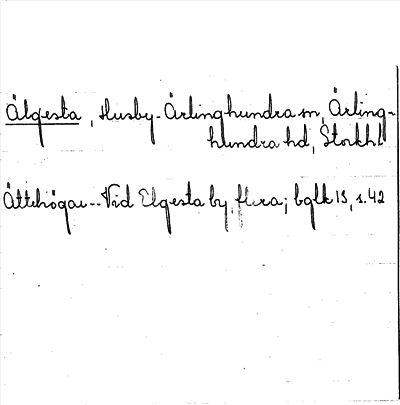 Älgesta, Husby-Ärlinghundra sn, Ärling-
hundra hd, Stockh
Ättehögar -- Vid Elgesta by, flera; bglk 13, s. 42